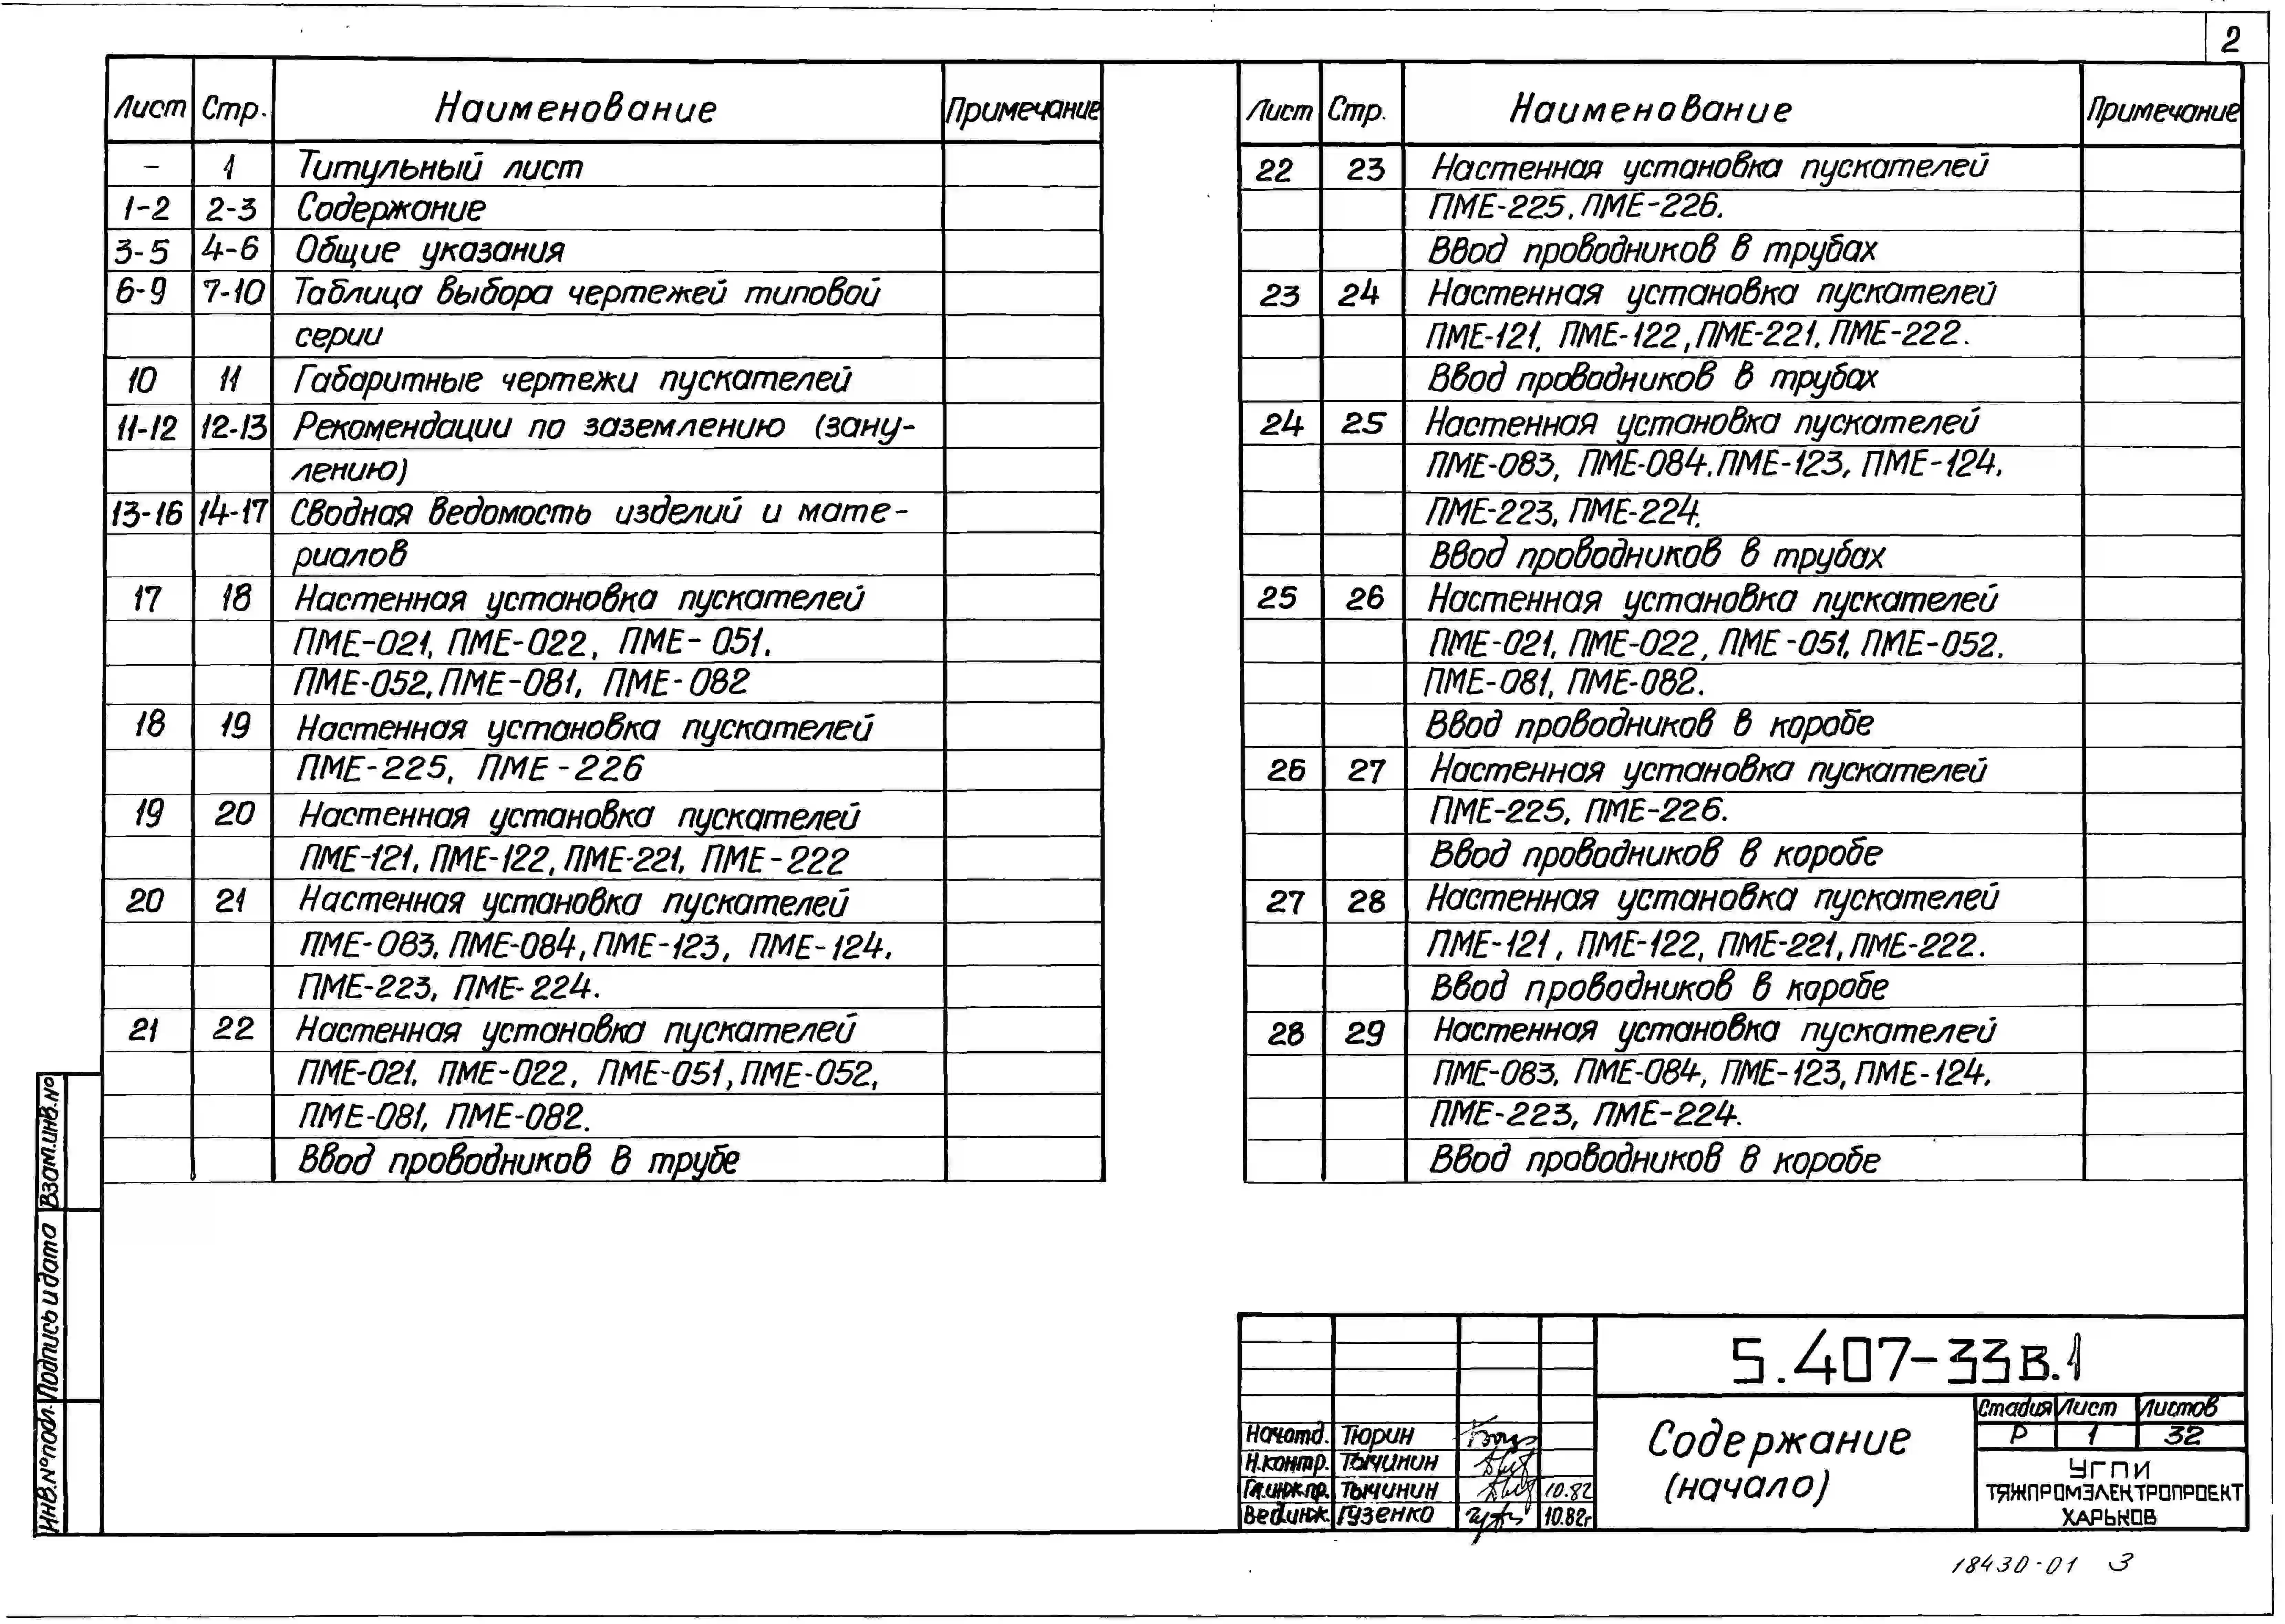 2
Лист Стр. Наименование Примечание
– 1 Титульный лист
1-2 2-3 Содержание
3-5 4-6 Общие указания
6-9 7-10 Таблица выбора чертежей типовой
серии
10 11 Габаритные чертежи пускателей
11-12 12-13 Рекомендации по заземлению (зану-
лению)
13-16 14-17 Сводная ведомость изделий и мате-
риалов
17 18 Настенная установка пускателей
ПМЕ-021, ПМЕ-022, ПМЕ-051,
ПМЕ-052, ПМЕ-081, ПМЕ-082
18 19 Настенная установка пускателей
ПМЕ-225, ПМЕ-226
19 20 Настенная установка пускателей
ПМЕ-121, ПМЕ-122, ПМЕ-221, ПМЕ-222
20 21 Настенная установка пускателей
ПМЕ-083, ПМЕ-084, ПМЕ-123, ПМЕ-124,
ПМЕ-223, ПМЕ-224.
21 22 Настенная установка пускателей
ПМЕ-021, ПМЕ-022, ПМЕ-051, ПМЕ-052,
ПМЕ-081, ПМЕ-082.
Ввод проводников в трубе
Лист Стр. Наименование Примечание
22 23 Настенная установка пускателей
ПМЕ-225, ПМЕ-226.
Ввод проводников в трубах
23 24 Настенная установка пускателей
ПМЕ-121, ПМЕ-122, ПМЕ-221, ПМЕ-222.
Ввод проводников в трубах
24 25 Настенная установка пускателей
ПМЕ-083, ПМЕ-084, ПМЕ-123, ПМЕ-124,
ПМЕ-223, ПМЕ-224.
Ввод проводников в трубах
25 26 Настенная установка пускателей
ПМЕ-021, ПМЕ-022, ПМЕ-051, ПМЕ-052,
ПМЕ-081, ПМЕ-082.
Ввод проводников в коробе
26 27 Настенная установка пускателей
ПМЕ-225, ПМЕ-226.
Ввод проводников в коробе
27 28 Настенная установка пускателей
ПМЕ-121, ПМЕ-122, ПМЕ-221, ПМЕ-222.
Ввод проводников в коробе
28 29 Настенная установка пускателей
ПМЕ-083, ПМЕ-084, ПМЕ-123, ПМЕ-124,
ПМЕ-223, ПМЕ-224.
Ввод проводников в коробе
Взам.инв.№
Подпись и дата
Инв.№ подл.
5.407-33 В.1
Нач отд. Тюрин
Н.контр. Тычинин
Гл.инж.пр. Тычинин 10.82
Вед.инж. Гузенко 10.82г
Содержание
(начало)
Стадия Лист Листов
Р 1 32
УГПИ
ТЯЖПРОМЭЛЕКТРОПРОЕКТ
ХАРЬКОВ
18430-01 3